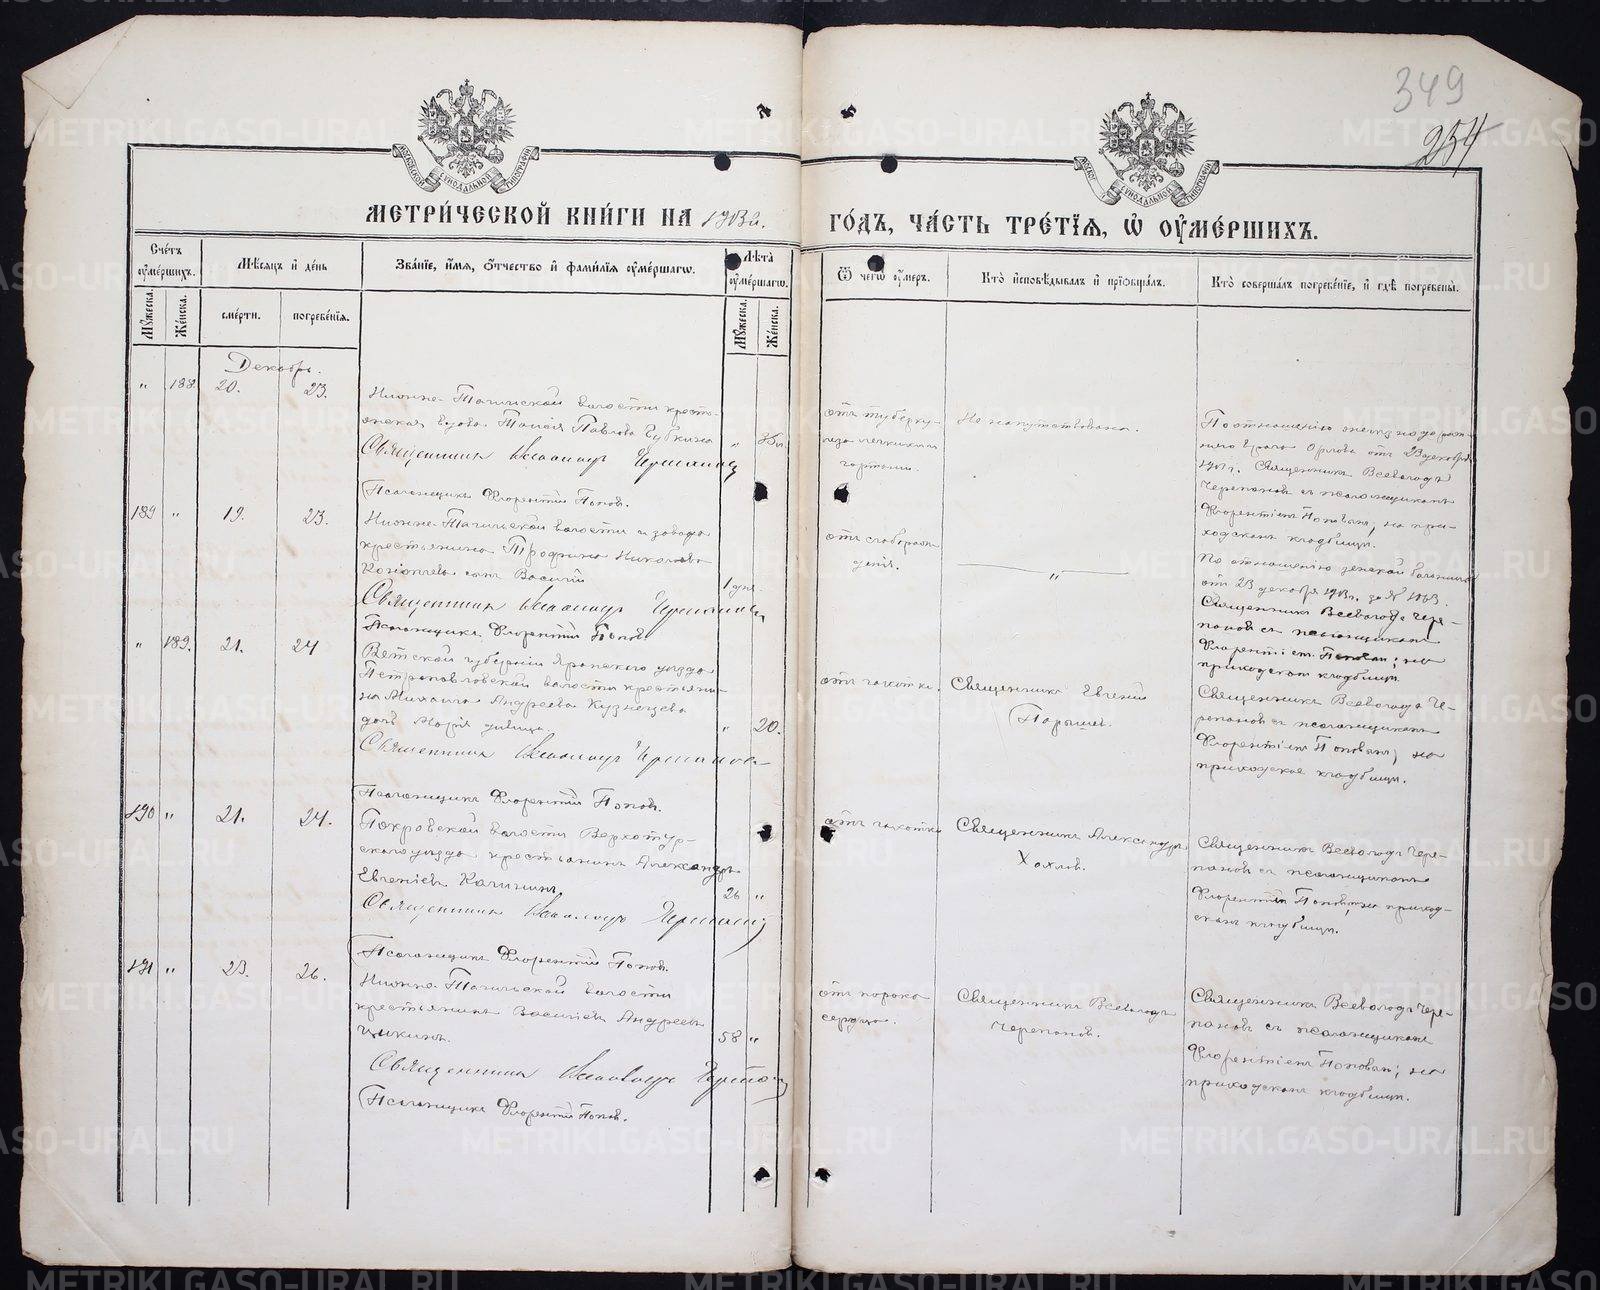 349
254
МОСКОВСКОЙ СѴНОДАЛЬНОЙ ТИПОГРАФІИ
МОСКОВ. СѴНОДАЛЬНОЙ ТИПОГРАФІИ
МЕТРИ́ЧЕСКОЙ КНИ́ГИ НА 1903 г. ГО́ДЪ, ЧА́СТЬ ТРЕ́ТІѦ, Ѡ ОУ҆МЕ́РШИХЪ.
Счётъ оу҆ме́ршихъ.
Мꙋ́жеска.
Же́нска.
Мѣ́сяцъ и҆ де́нь
сме́рти.
погребе́нїя.
Зва́нїе, и҆́мя, ѻ҆́тчество и҆ фами́лїя оу҆ме́ршагѡ.
Лѣ̀та̀ оу҆ме́ршагѡ.
Мꙋ́жеска.
Же́нска.
Ѿ чегѡ̀ оу҆́меръ.
Кто̀ и҆сповѣ́дывалъ и҆ прїѡбща́лъ.
Кто̀ соверша́лъ погребе́нїе, и҆ гдѣ̀ погребены̀.
Декабрь.
" 188. 20. 23.
Нижне-Тагильской волости кресть-
янская вдова Таисія Павлова Губкина
Священникъ Всеволодъ Черепановъ
Псаломщикъ Флорентій Поповъ.
отъ туберку-
леза легкихъ и
гортани.
Не напутствована.
отъ 23 декабря
Священникъ Всеволодъ
Черепановъ съ псаломщикомъ
Флорентіемъ Поповымъ, на при-
ходскомъ кладбищѣ.
189 " 19. 23.
Нижне-Тагильской волости и завода
крестьянина Трофима Николаева
сынъ Василій
1 дня
Священникъ Всеволодъ Черепановъ
Псаломщикъ Флорентій Поповъ.
отъ слаборож-
денія.
"
По отношенію земской больницы
отъ 23 декабря 1903 г. за № 1963.
Священникъ Всеволодъ Чере-
пановъ съ псаломщикомъ
Флорентіемъ Поповымъ, на
приходскомъ кладбищѣ.
" 189. 21. 24
Вятской губерніи Яранского уѣзда
Петропавловской волости крестьяни-
на Михаила Андреева Кузнецова
дочь Марія дѣвица.
" 20.
Священникъ Всеволодъ Черепановъ
Псаломщикъ Флорентій Поповъ.
отъ чахотки.
Священникъ Евгеній
Парышевъ.
Священникъ Всеволодъ Че-
репановъ съ псаломщикомъ
Флорентіемъ Поповымъ, на
приходскомъ кладбищѣ.
190 " 21. 24.
Покровской волости Верхотур-
скаго уѣзда крестьянинъ Александръ
Евгеніевъ Калининъ
26 "
Священникъ Всеволодъ Черепановъ
Псаломщикъ Флорентій Поповъ.
отъ чахотки
Священникъ Александръ
Хохловъ.
Священникъ Всеволодъ Чере-
пановъ съ псаломщикомъ
Флорентіемъ Поповымъ, на приход-
скомъ кладбищѣ.
191 " 23. 26.
Нижне-Тагильской волости
крестьянинъ Василій Андреевъ
Цикинъ.
58 "
Священникъ Всеволодъ Черепановъ
Псаломщикъ Флорентій Поповъ.
отъ порока
сердца.
Священникъ Всеволодъ
Черепановъ.
Священникъ Всеволодъ Чере-
пановъ съ псаломщикомъ
Флорентіемъ Поповымъ, на
приходскомъ кладбищѣ.
METRIKI.GASO-URAL.RU